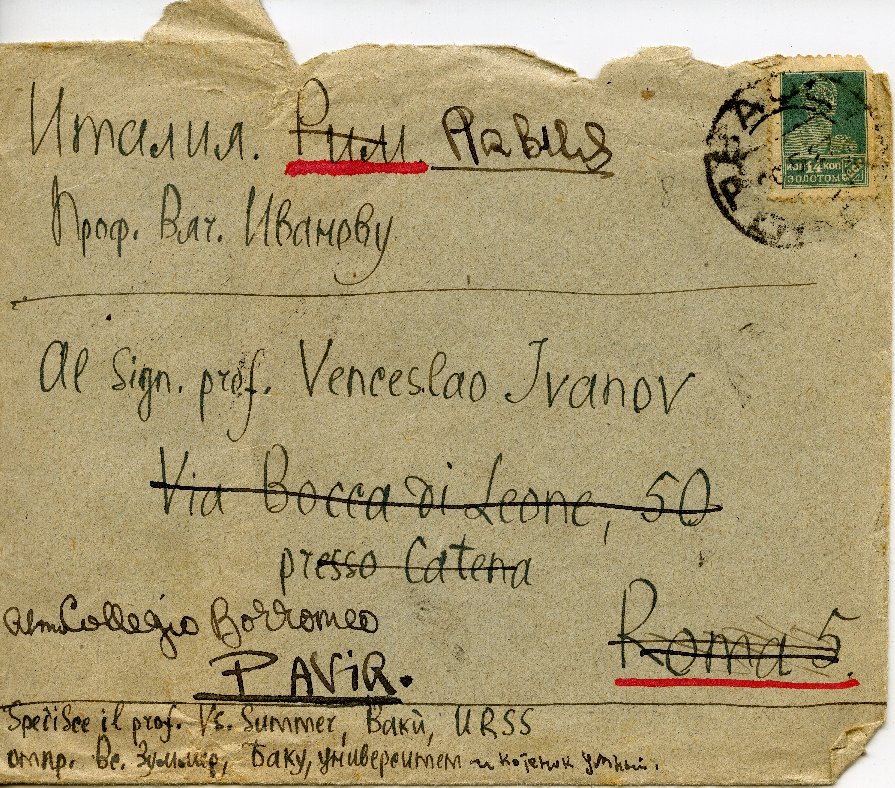 Италия. Рим Павия
КОП 14 КОП
ЗОЛОТОМ
БАКУ
Проф. Вяч. Иванову
Al Sign. prof. Venceslao Ivanov
Via Bocca di Leone, 50
presso Catena
Alm. Collegio Borromeo
Roma 5.
PAViA.
Spedisce il prof. Vs. Summer, Bakù, URSS
отпр. Вс. Зуммер, Баку, университет и котенок умный.